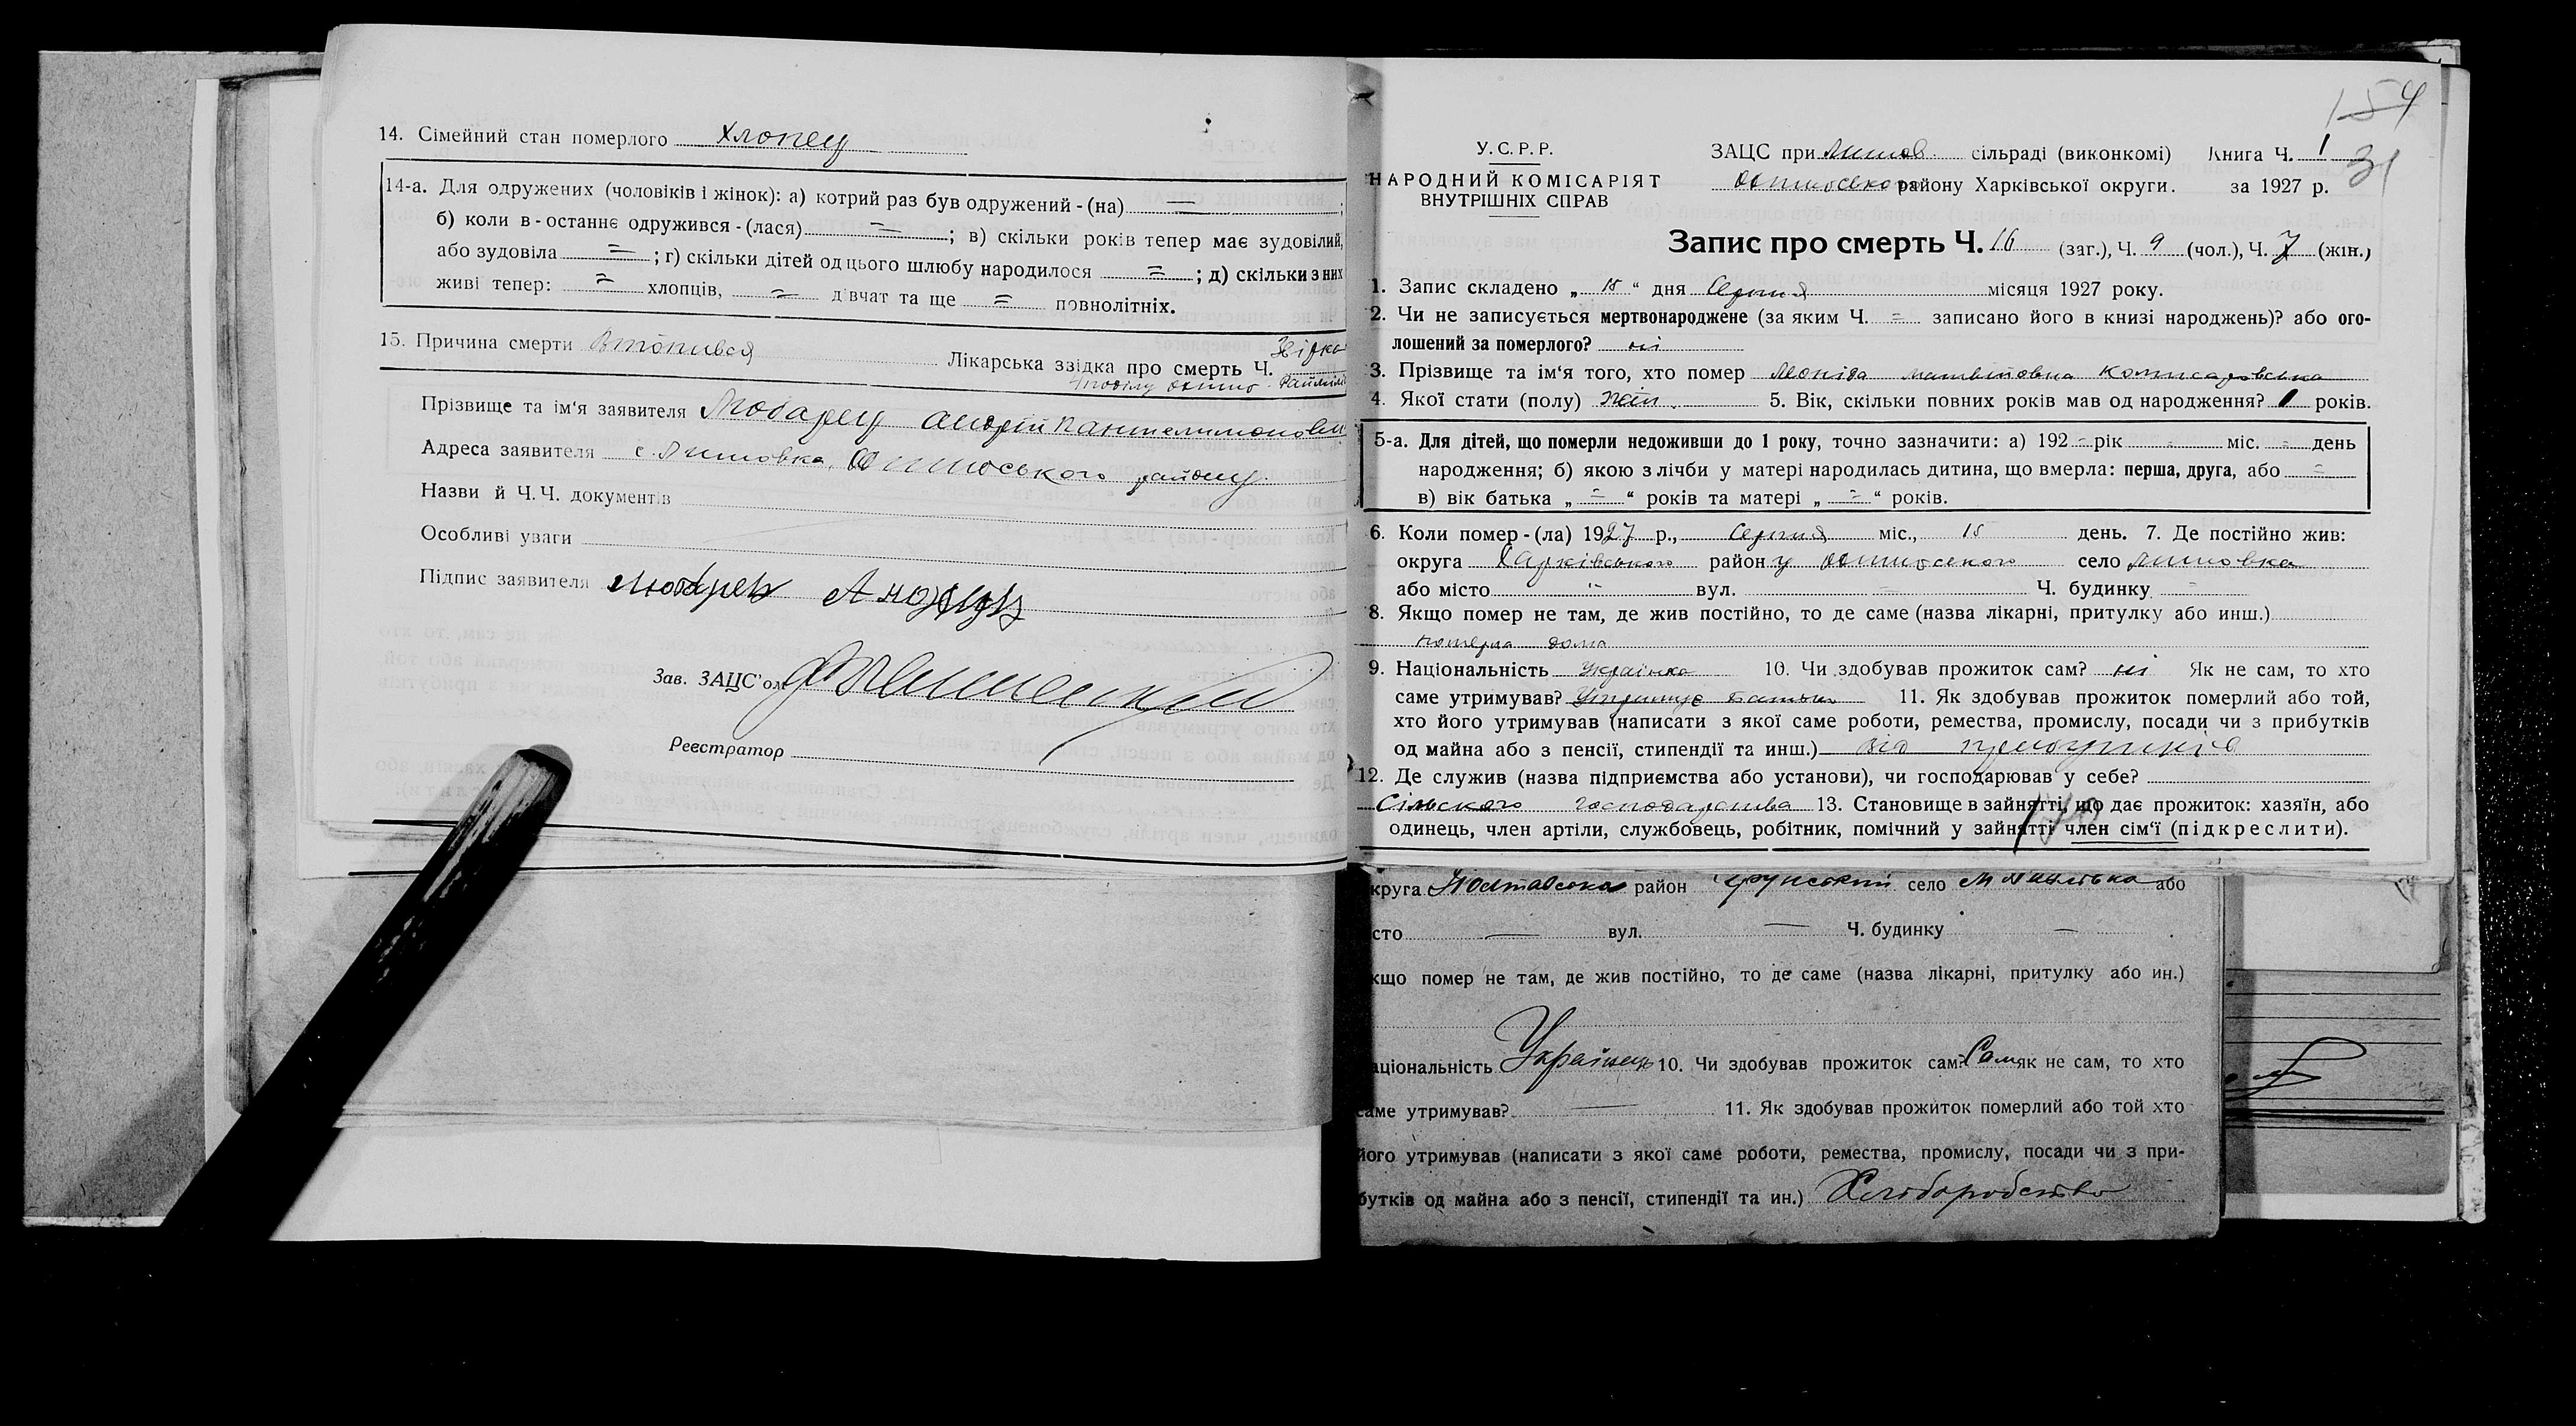 14. Сімейний стан померлого хлопец
14-а. Для одружених (чоловіків і жінок): а) котрий раз був одружений-(на) — ;
б) коли в-останнє одружився-(лася) = ; в) скільки років тепер має зудовілий,
або зудовіла = ; г) скільки дітей од цього шлюбу народилося = ; д) скільки з них
живі тепер: = хлопців, = дівчат та ще = повнолітніх.
15. Причина смерти Втопився Лікарська звідка про смерть Ч.
Прізвище та ім'я заявителя Андрій Пантелимонович
Адреса заявителя с. району
Назви й Ч.Ч. документів
Особливі уваги
Підпис заявителя
Зав. ЗАЦС'ом
Реєстратор
154
31
У.С.Р.Р.
НАРОДНИЙ КОМІСАРІЯТ
ВНУТРІШНІХ СПРАВ
ЗАЦС при сільраді (виконкомі) Книга Ч. 1
району Харківської округи. за 1927 р.
Запис про смерть Ч. 16 (заг.), Ч. 9 (чол.), Ч. 7 (жін.)
1. Запис складено „ 18 " дня Серпня місяця 1927 року.
2. Чи не записується мертвонароджене (за яким Ч. = записано його в книзі народжень)? або ого-
лошений за померлого? ні
3. Прізвище та ім'я того, хто помер Комисаровська
4. Якої стати (полу) жін. 5. Вік, скільки повних років мав од народження? 1 років.
5-а. Для дітей, що померли недоживши до 1 року, точно зазначити: а) 192 - рік - міс. - день
народження; б) якою з лічби у матері народилась дитина, що вмерла: перша, друга, або =
в) вік батька „ = " років та матері „ = " років.
6. Коли помер-(ла) 1927 р., Серпня міс., день. 7. Де постійно жив:
округа Харківського району село
або місто вул. = Ч. будинку =
8. Якщо помер не там, де жив постійно, то де саме (назва лікарні, притулку або инш.)
померла дома
9. Національність Українка 10. Чи здобував прожиток сам? ні Як не сам, то хто
саме утримував? 11. Як здобував прожиток померлий або той,
хто його утримував (написати з якої саме роботи, ремества, промислу, посади чи з прибутків
од майна або з пенсії, стипендії та инш.) від
12. Де служив (назва підприємства або установи), чи господарював у себе?
Сільского господарства 13. Становище в зайнятті, що дає прожиток: хазяїн, або
одинець, член артіли, службовець, робітник, помічний у зайнятті член сім'ї (підкреслити).
круга Полтавська район село або
сто — вул. — Ч. будинку —
кщо помер не там, де жив постійно, то де саме (назва лікарні, притулку або ин.)
аціональність Українець 10. Чи здобував прожиток сам? Сам як не сам, то хто
саме утримував? — 11. Як здобував прожиток померлий або той хто
його утримував (написати з якої саме роботи, ремества, промислу, посади чи з при-
бутків од майна або з пенсії, стипендії та ин.) Хліборобство